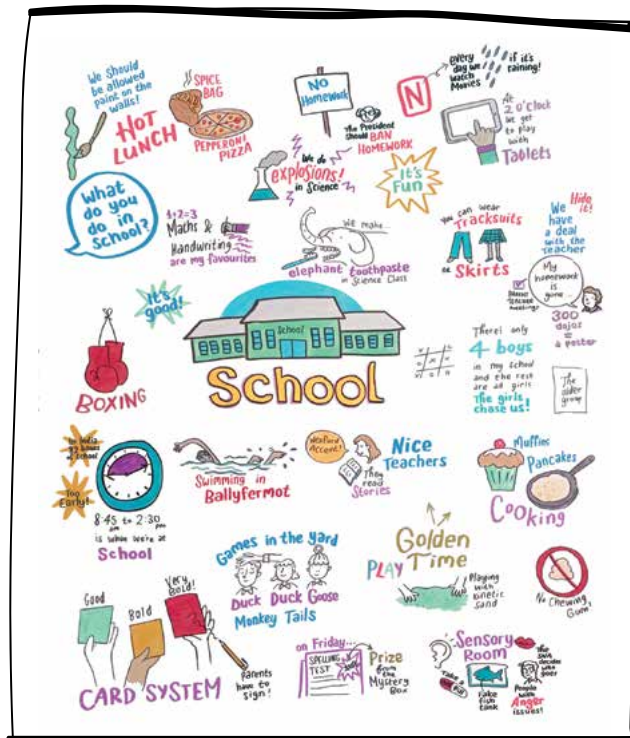 We Should
be allowed
paint on the
walls!
HOT
LUNCH
SPICE
BAG
PEPPERONI
PIZZA
NO
Homework
The President
Should BAN
HOMEWORK
N
every
day we
watch
Movies
if it's
raining!
At
2 O'Clock
we get
to play
with
Tablets
We do
explosions!
in Science
It's
Fun
What
do you
do in
School?
1+2=3
Maths &
Handwriting
are my favourites
We make...
elephant toothpaste
in Science Class
You can wear
Tracksuits
or Skirts
Hide
it!
We
have
a deal
with the
teacher
My
homework
is
gone
Parent
Teacher
meetings!
300
dojos
=
a poster
It's
good!
BOXING
School
School
There's only
4 boys
in my school
and the rest
are all girls
The girls
chase us!
The
older
group
In India
Too
Early!
8:45 am to 2:30 pm
is when we're at
School
Swimming in
Ballyfermot
Wexford
Accent!
They
read
Stories
Nice
Teachers
Muffins
Pancakes
Cooking
Games in the yard
Duck Duck Goose
Monkey Tails
Golden
Time
PLAY
Playing
with
kinetic
sand
No Chewing
Gum
Good
Bold
Very
Bold!
CARD SYSTEM
Parents
have to
sign!
on Friday...
SPELLING
TEST
Prize
from the
Mystery
Box
Sensory
Room
Take a
Pill
Fake
fish
tank
The
SNA
decides
who
goes
People
with
Anger
issues!